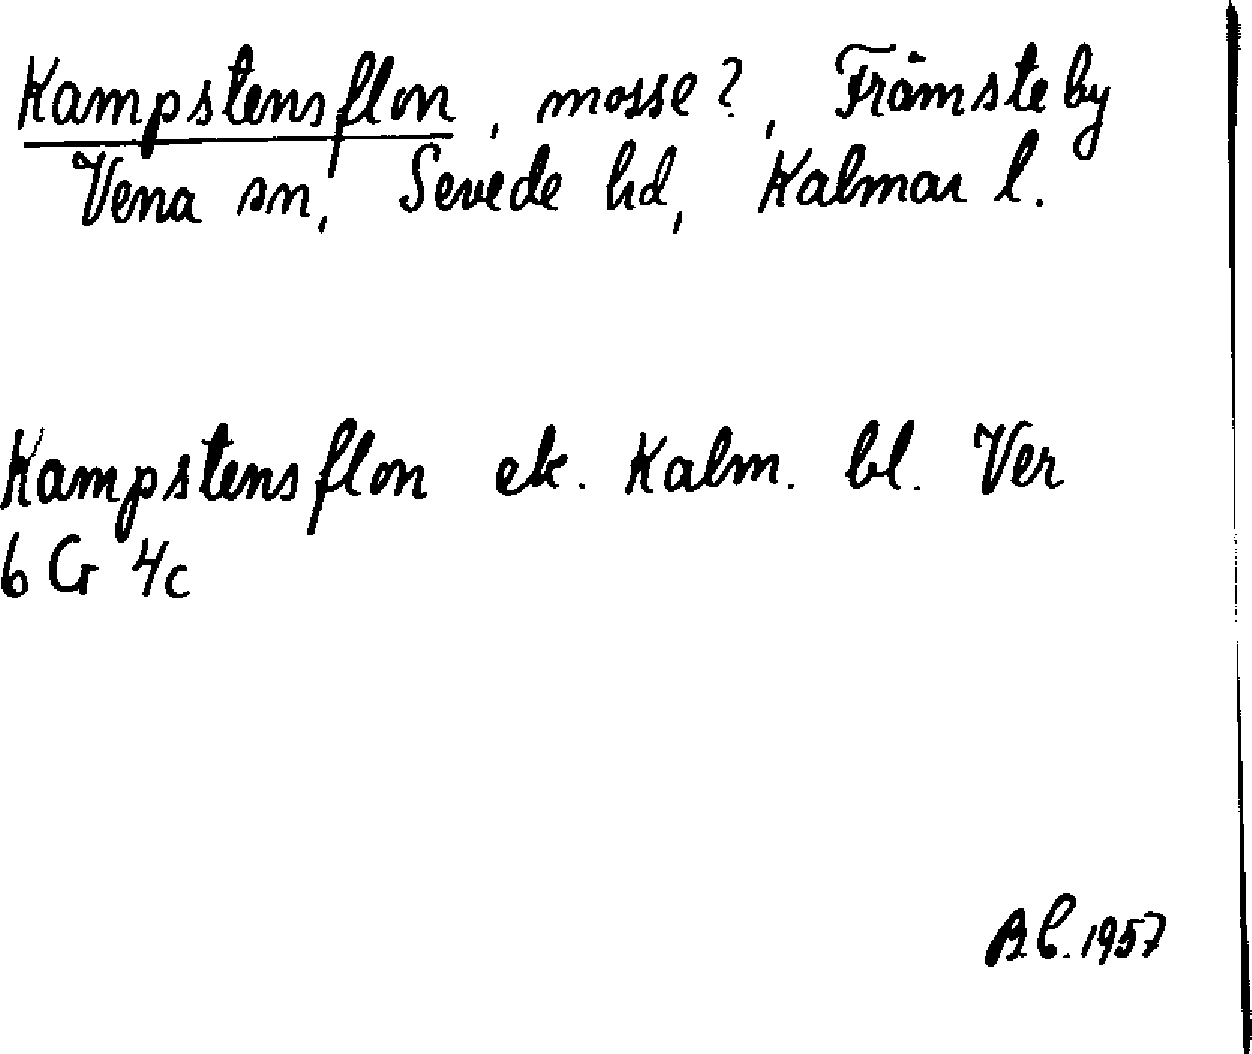 Kampstensflon, mosse?, Främsteby
Vena sn, Sevede hd, Kalmar l.
Kampstensflon ek. Kalm. bl. Ver
6 G 4c